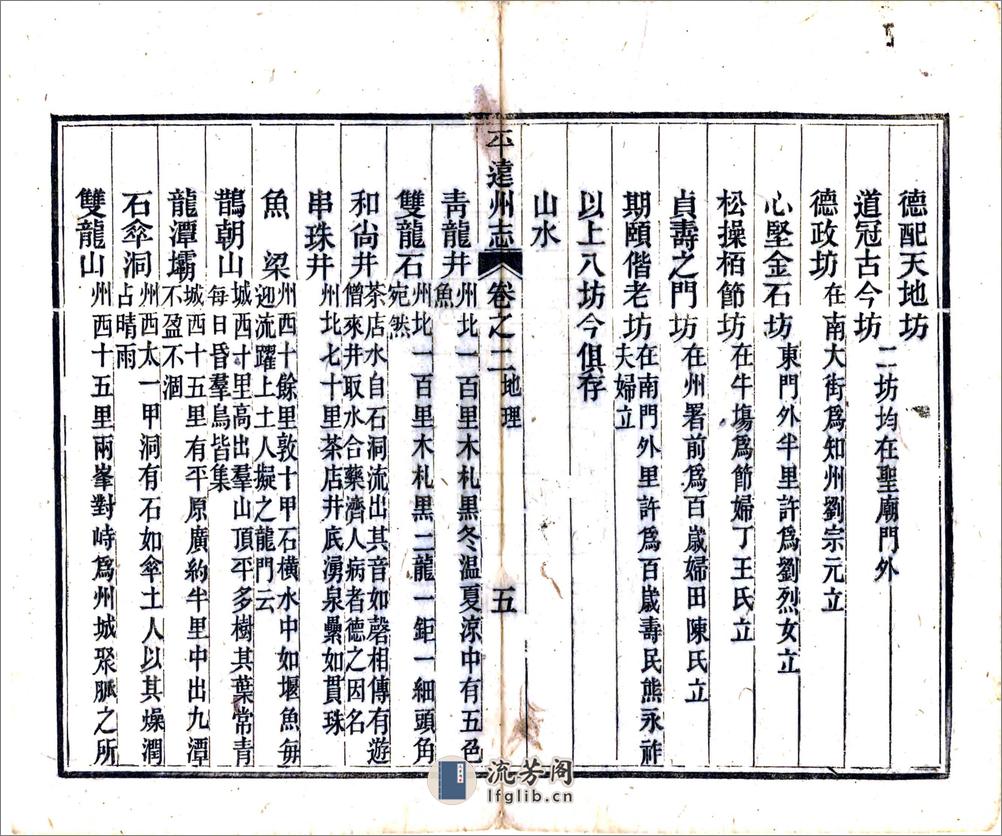 德配天地坊
道冠古今坊 二坊均在聖廟門外
德政坊 在南大街為知州劉宗元立
心堅金石坊 東門外半里許為劉烈女立
松操栢節坊 在牛塲為節婦丁王氏立
貞壽之門坊 在州署前為百歲婦田陳氏立
期頤偕老坊 在南門外里許為百歲壽民熊永祚
夫婦立
以上八坊今俱存
山水
平遠州志 卷之二 地理 五
青龍井 州北一百里木札黑冬温夏涼中有五色
魚
雙龍石 州北一百里木札黑二龍一鉅一細頭角
宛然
和尚井 茶店水自石洞流出其音如磬相傳有遊
僧來井取水合藥濟人病者德之因名
串珠井 州北七十里茶店井底湧泉纍如貫珠
魚梁 州西十餘里敦十甲石橫水中如堰魚每
迎流躍上土人擬之龍門云
鵲朝山 城西寸里高出羣山頂平多樹其葉常青
每日昏羣鳥皆集
龍潭壩 城西十五里有平原廣約半里中出九潭
不盈不涸
石傘洞 州西太一甲洞有石如傘土人以其燥潤
占晴雨
雙龍山 州西十五里兩峯對峙為州城聚脈之所
流芳阁
lfglib.cn